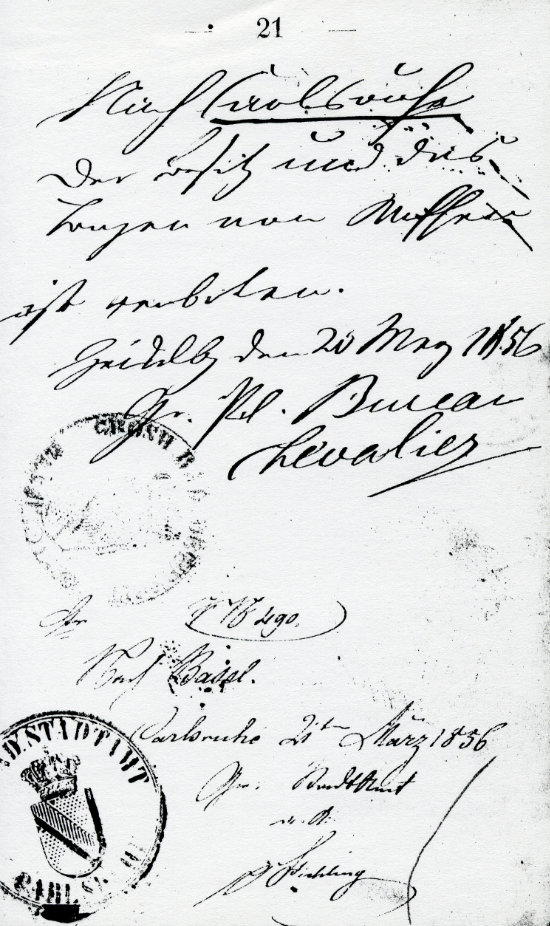 21
Nach Carlsruhe
Der Besitz und das
Tragen von Waffen
ist verboten.
Heidelbg den 20 Merz 1856
Gr. Pol. Bureau
Chevalier
GROSH. BAD.
490.
Nach Basel.
Carlsruhe 21ten März 1856
Gr. Stadtamt
D. STADTAMT
CARLSRUHE